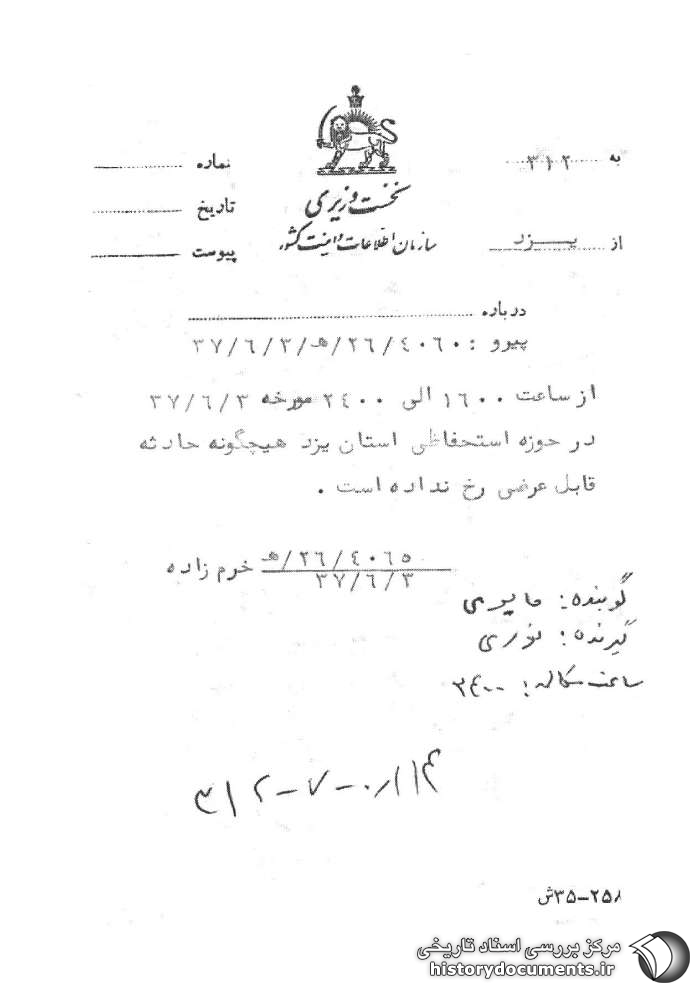 به ۳۱۲
نخست وزیری
شماره
از یزد
سازمان اطلاعات و امنیت کشور
تاریخ
پیوست
درباره
پیرو : ۴۰۶۰/۲۶/ه/۳۷/۶/۳
از ساعت ۱۶۰۰ الی ۲۴۰۰ مورخه ۳۷/۶/۳
در حوزه استحفاظی استان یزد هیچگونه حادثه
قابل عرضی رخ نداده است .
۴۰۶۵/۲۶/ه
۳۷/۶/۳
خرم زاده
گوینده:
گیرنده: نوری
ساعت مکالمه: ۲۴۰۰
۳۱۲-۷-
۲۵۸-۳۵ش
مرکز بررسی اسناد تاریخی
historydocuments.ir